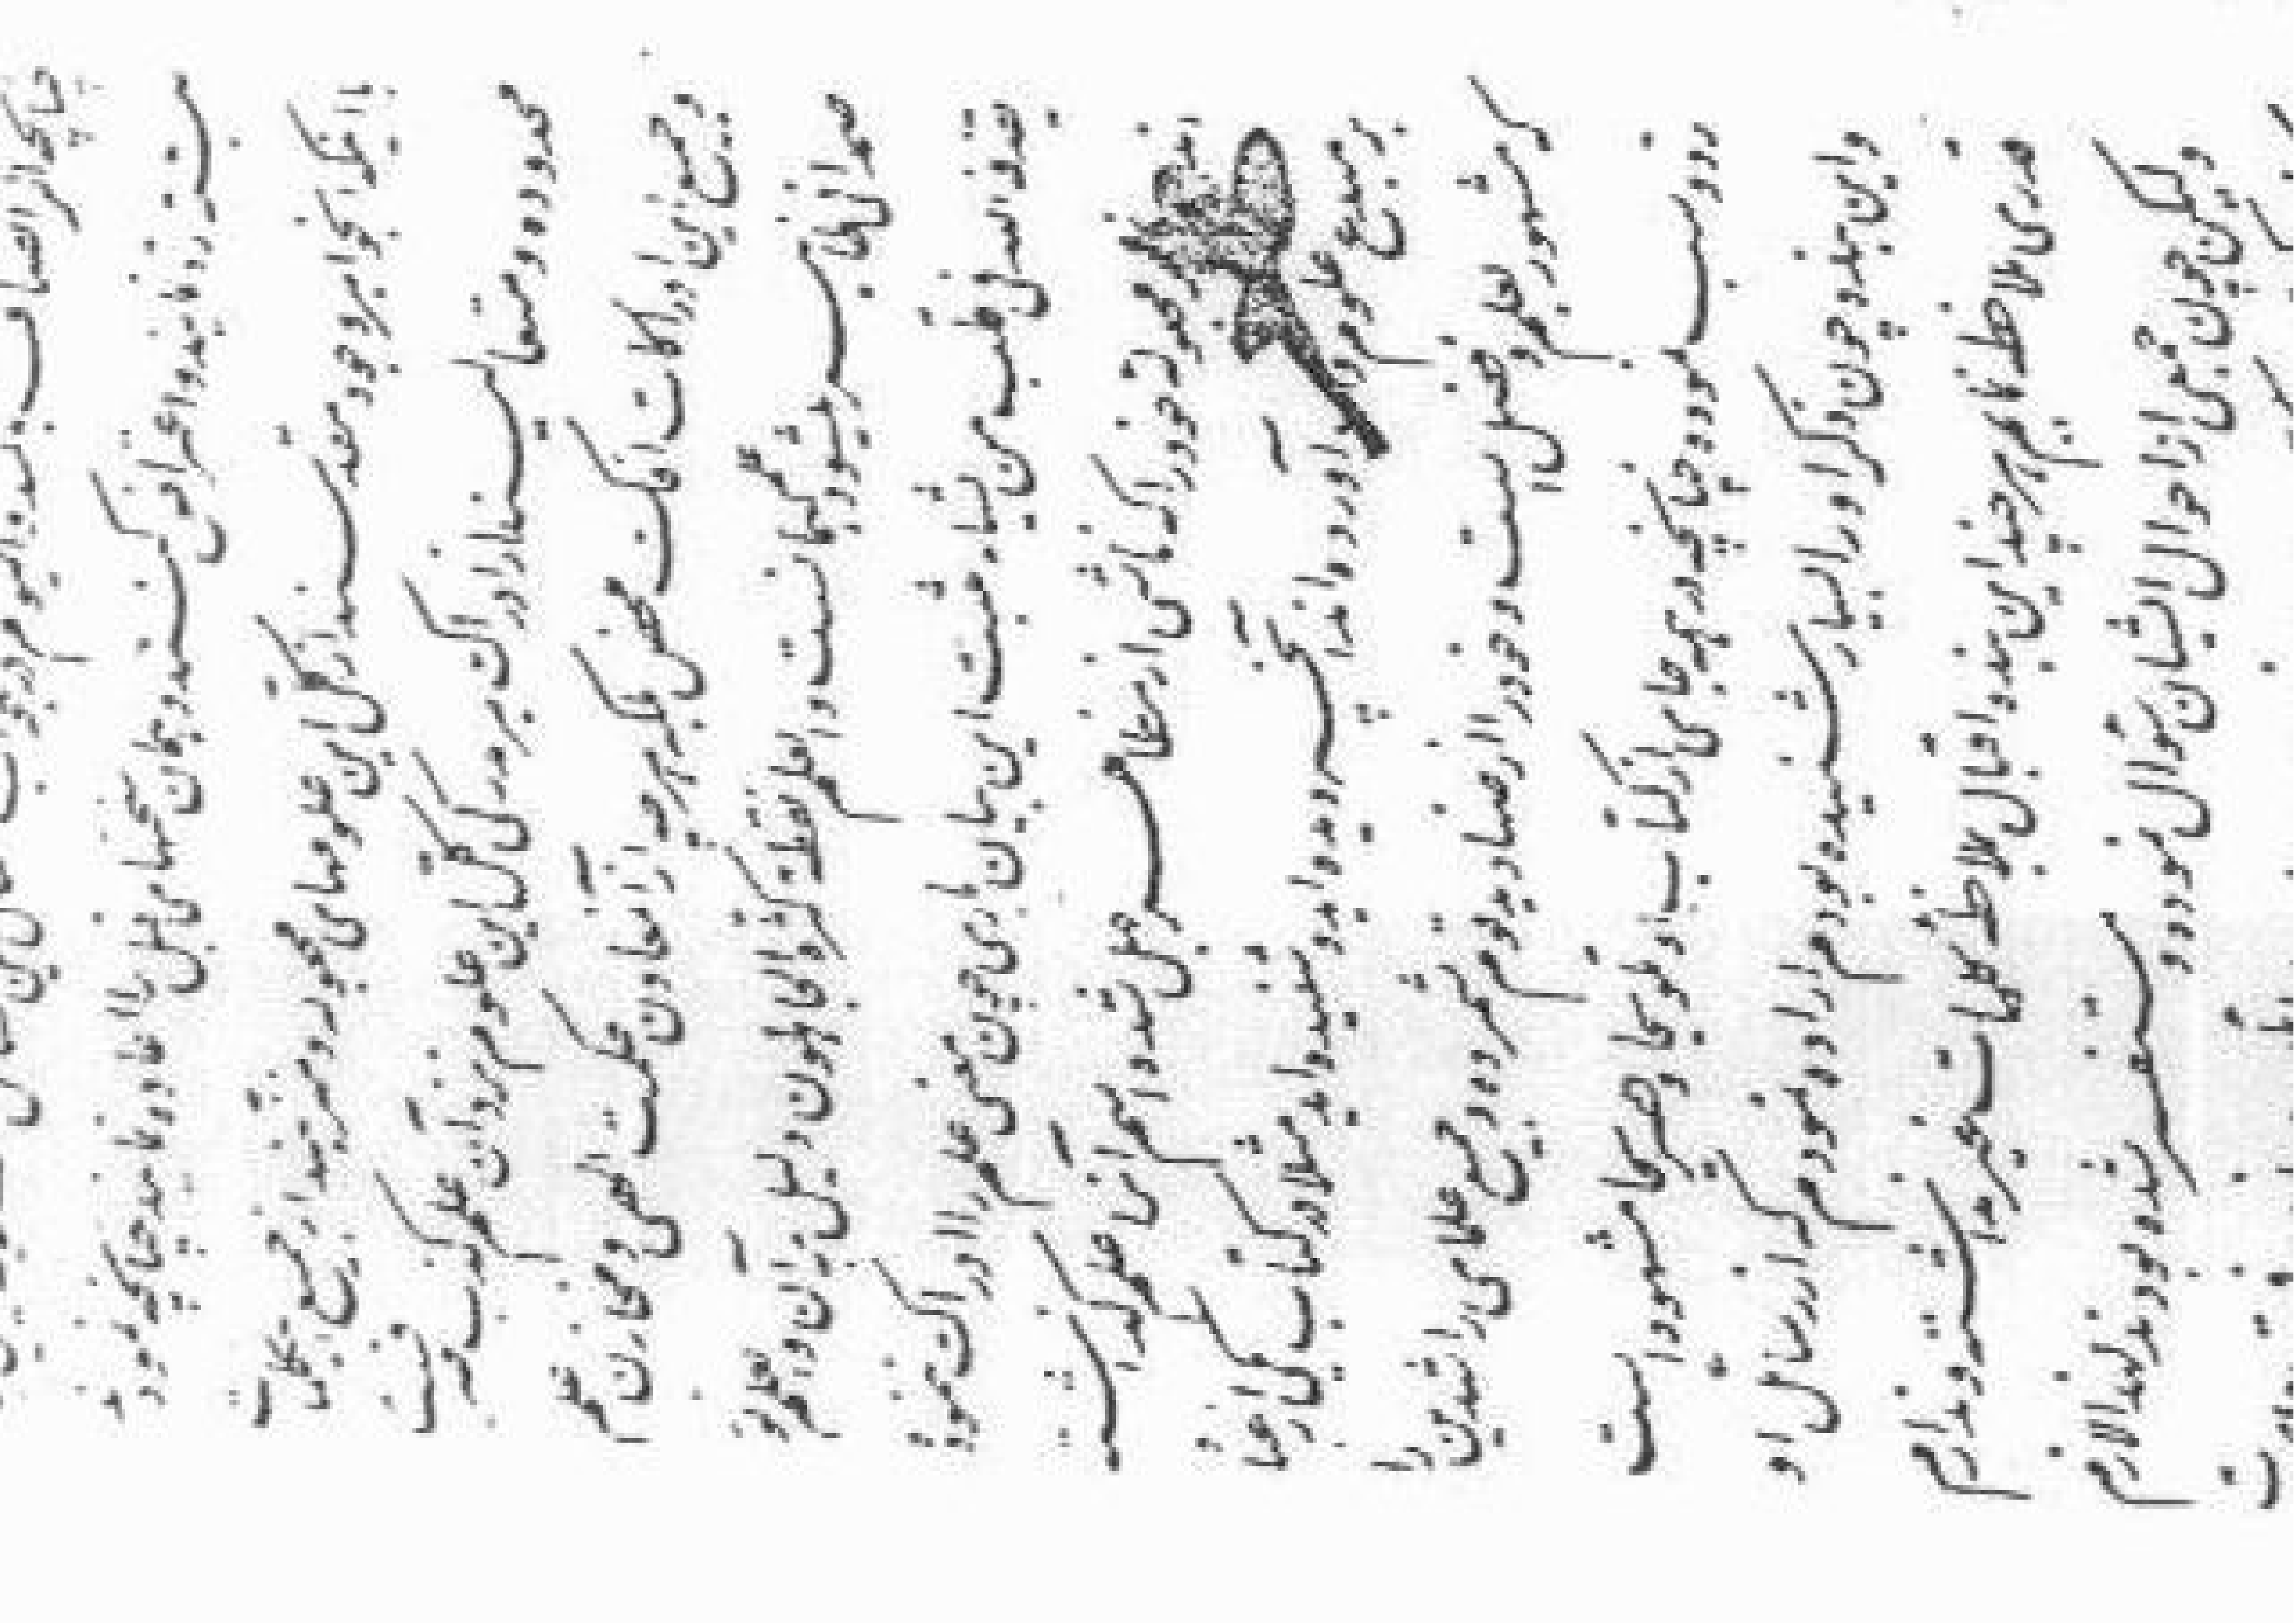 رد نمایند و اعتراض کنند و بهمان سخنهای قبل را اعاده نمایند چنانچه نمود
با اینکه آن جواهر وجود مقدسند از کل این علومهای مجعوله و منزهند از جمیع این کلمات
محدوده و متعالیند از ادراک هر مدرکی کل این علوم نزد آن علم کذب صرفست
و جمیع این ادراکات افک محض بلکه هر چه از آن معادن حکمت الهی و مخازن علم
صمدانی ظاهر میشود علم همانست و العلم نقطة کثرها الجاهلون دلیل بر آن و العلم نور
یقذفه الله فی قلب من یشاء مثبت این بیان باری چون معنی علم را ادراک ننموده
اند و مجعولات خود را که ناشی از مظاهر جهل شده اسم آن علم گذاشته
بر مبدع علوم وارد آورده اند آنچه دیده اید و شنیده اید مثلا در کتاب یکی از عباد
که مشهور بعلم و فضل است و خود را از صنادید قوم شمرده و جمیع علمای راشدین را
رد و سب نموده چنانچه در همه جای از کتاب او تلویحا و تصریحا مشهود است
و این بنده چون ذکر او را بسیار شنیده بودم اراده نمودم که از رسائل او
قدری ملاحظه نمایم هر چند این بنده اقبال بملاحظه کلمات غیر نداشته و ندارم
ولیکن چون جمعی از احوال ایشان سؤال نموده و مستفسر شده بودند لهذا لازم